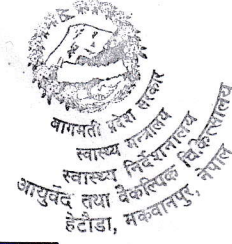 बागमती प्रदेश सरकार
स्वास्थ्य मन्त्रालय
स्वास्थ्य निर्देशनालय
आयुर्वेद तथा वैकल्पिक चिकित्सालय
हेटौडा, मकवानपुर, नेपाल